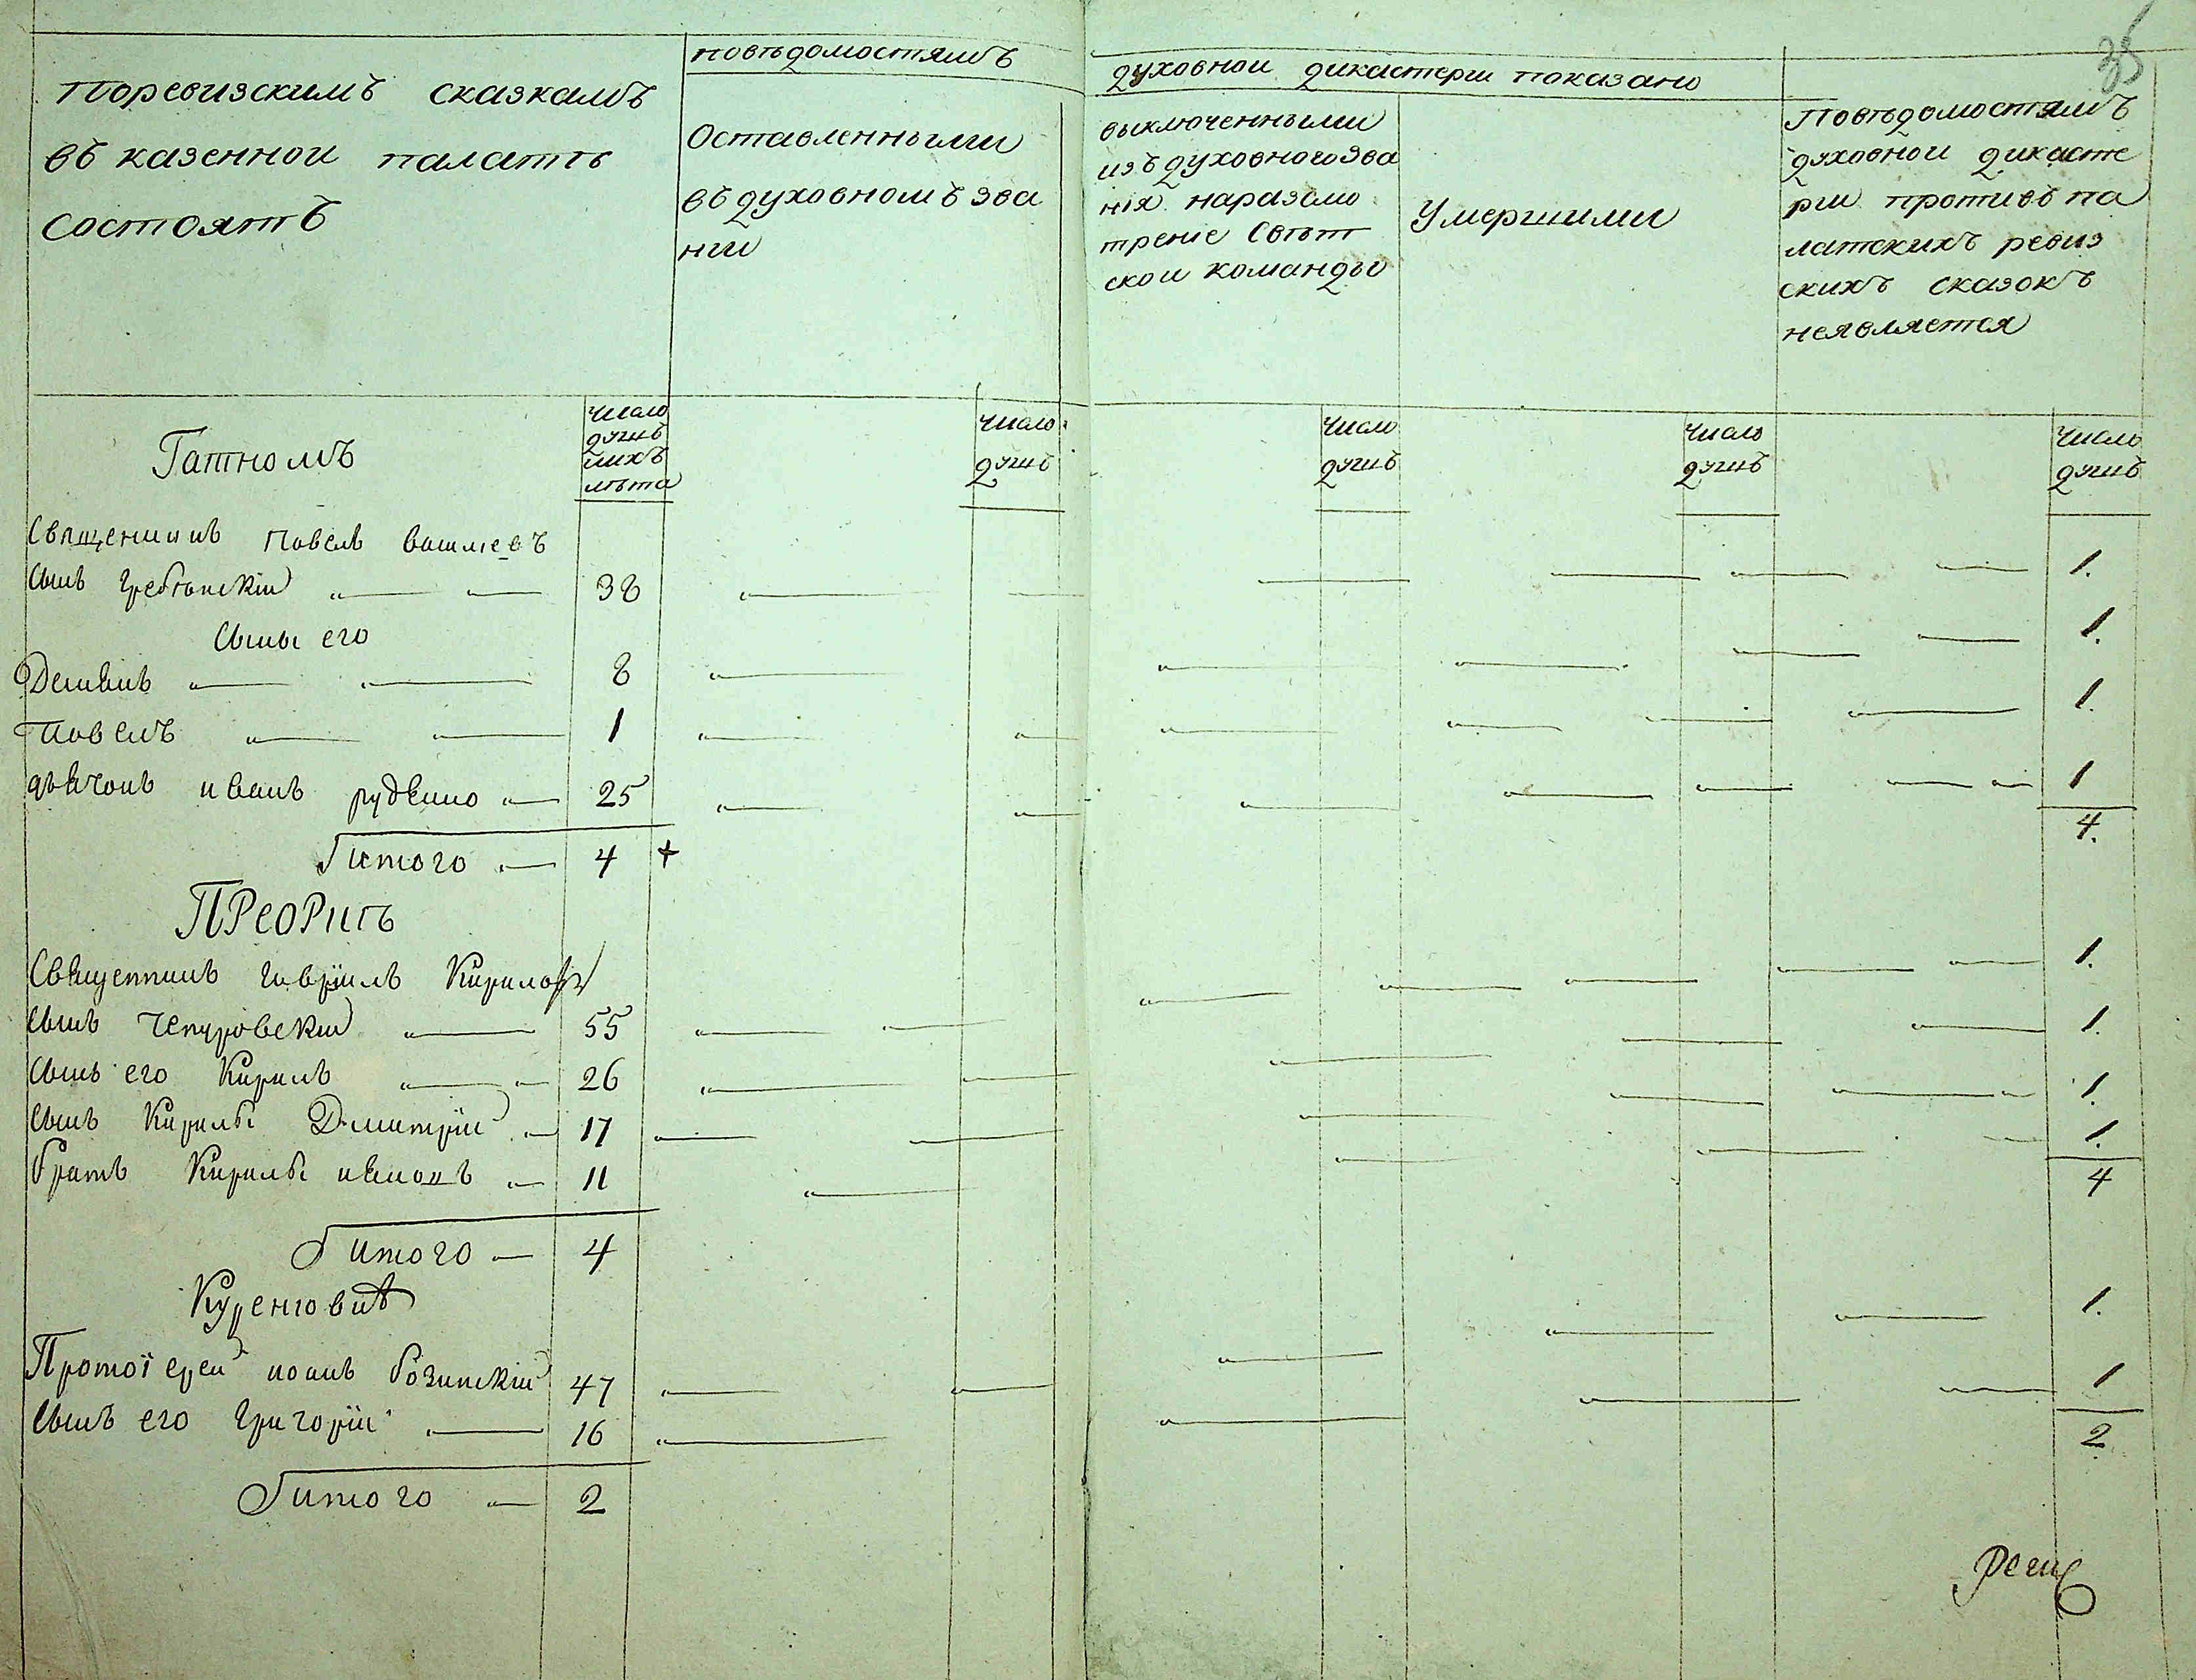 35
Поревизскимъ сказкамъ
въ казенной палатѣ
состоятъ
повѣдомостямъ
Оставленными
въ духовномъ зва
нии
духовной дикастерии показано
выключенными
изъ духовного зва
нія наразсмо
трение Свѣт
ской команды
Умершими
Повѣдомостямъ
духовной дикасте
рии противъ па
латскихъ ревиз
скихъ сказокъ
неявляется
Гатномъ
число
душъ
ихъ
лѣта
число
душъ
число
душъ
число
душъ
число
душъ
Священникъ Павелъ василиевъ
сынъ Гребѣнскій 38 1.
Сыны его
Демянъ 8 1.
Павелъ 1 1.
дьячокъ иванъ 25 1
итого 4 + 4.
ПРеоРкѣ
Священникъ гавріилъ Кириловъ
сынъ Чепуровскій 55 1.
сынъ его Кирилъ 26 1.
сынъ Кирилы Дмитрій 17 1.
братъ Кирилы 11 1.
4
итого 4
Протоіерей иоанъ 47 1.
сынъ его Григорій 16 1
2
итого 2